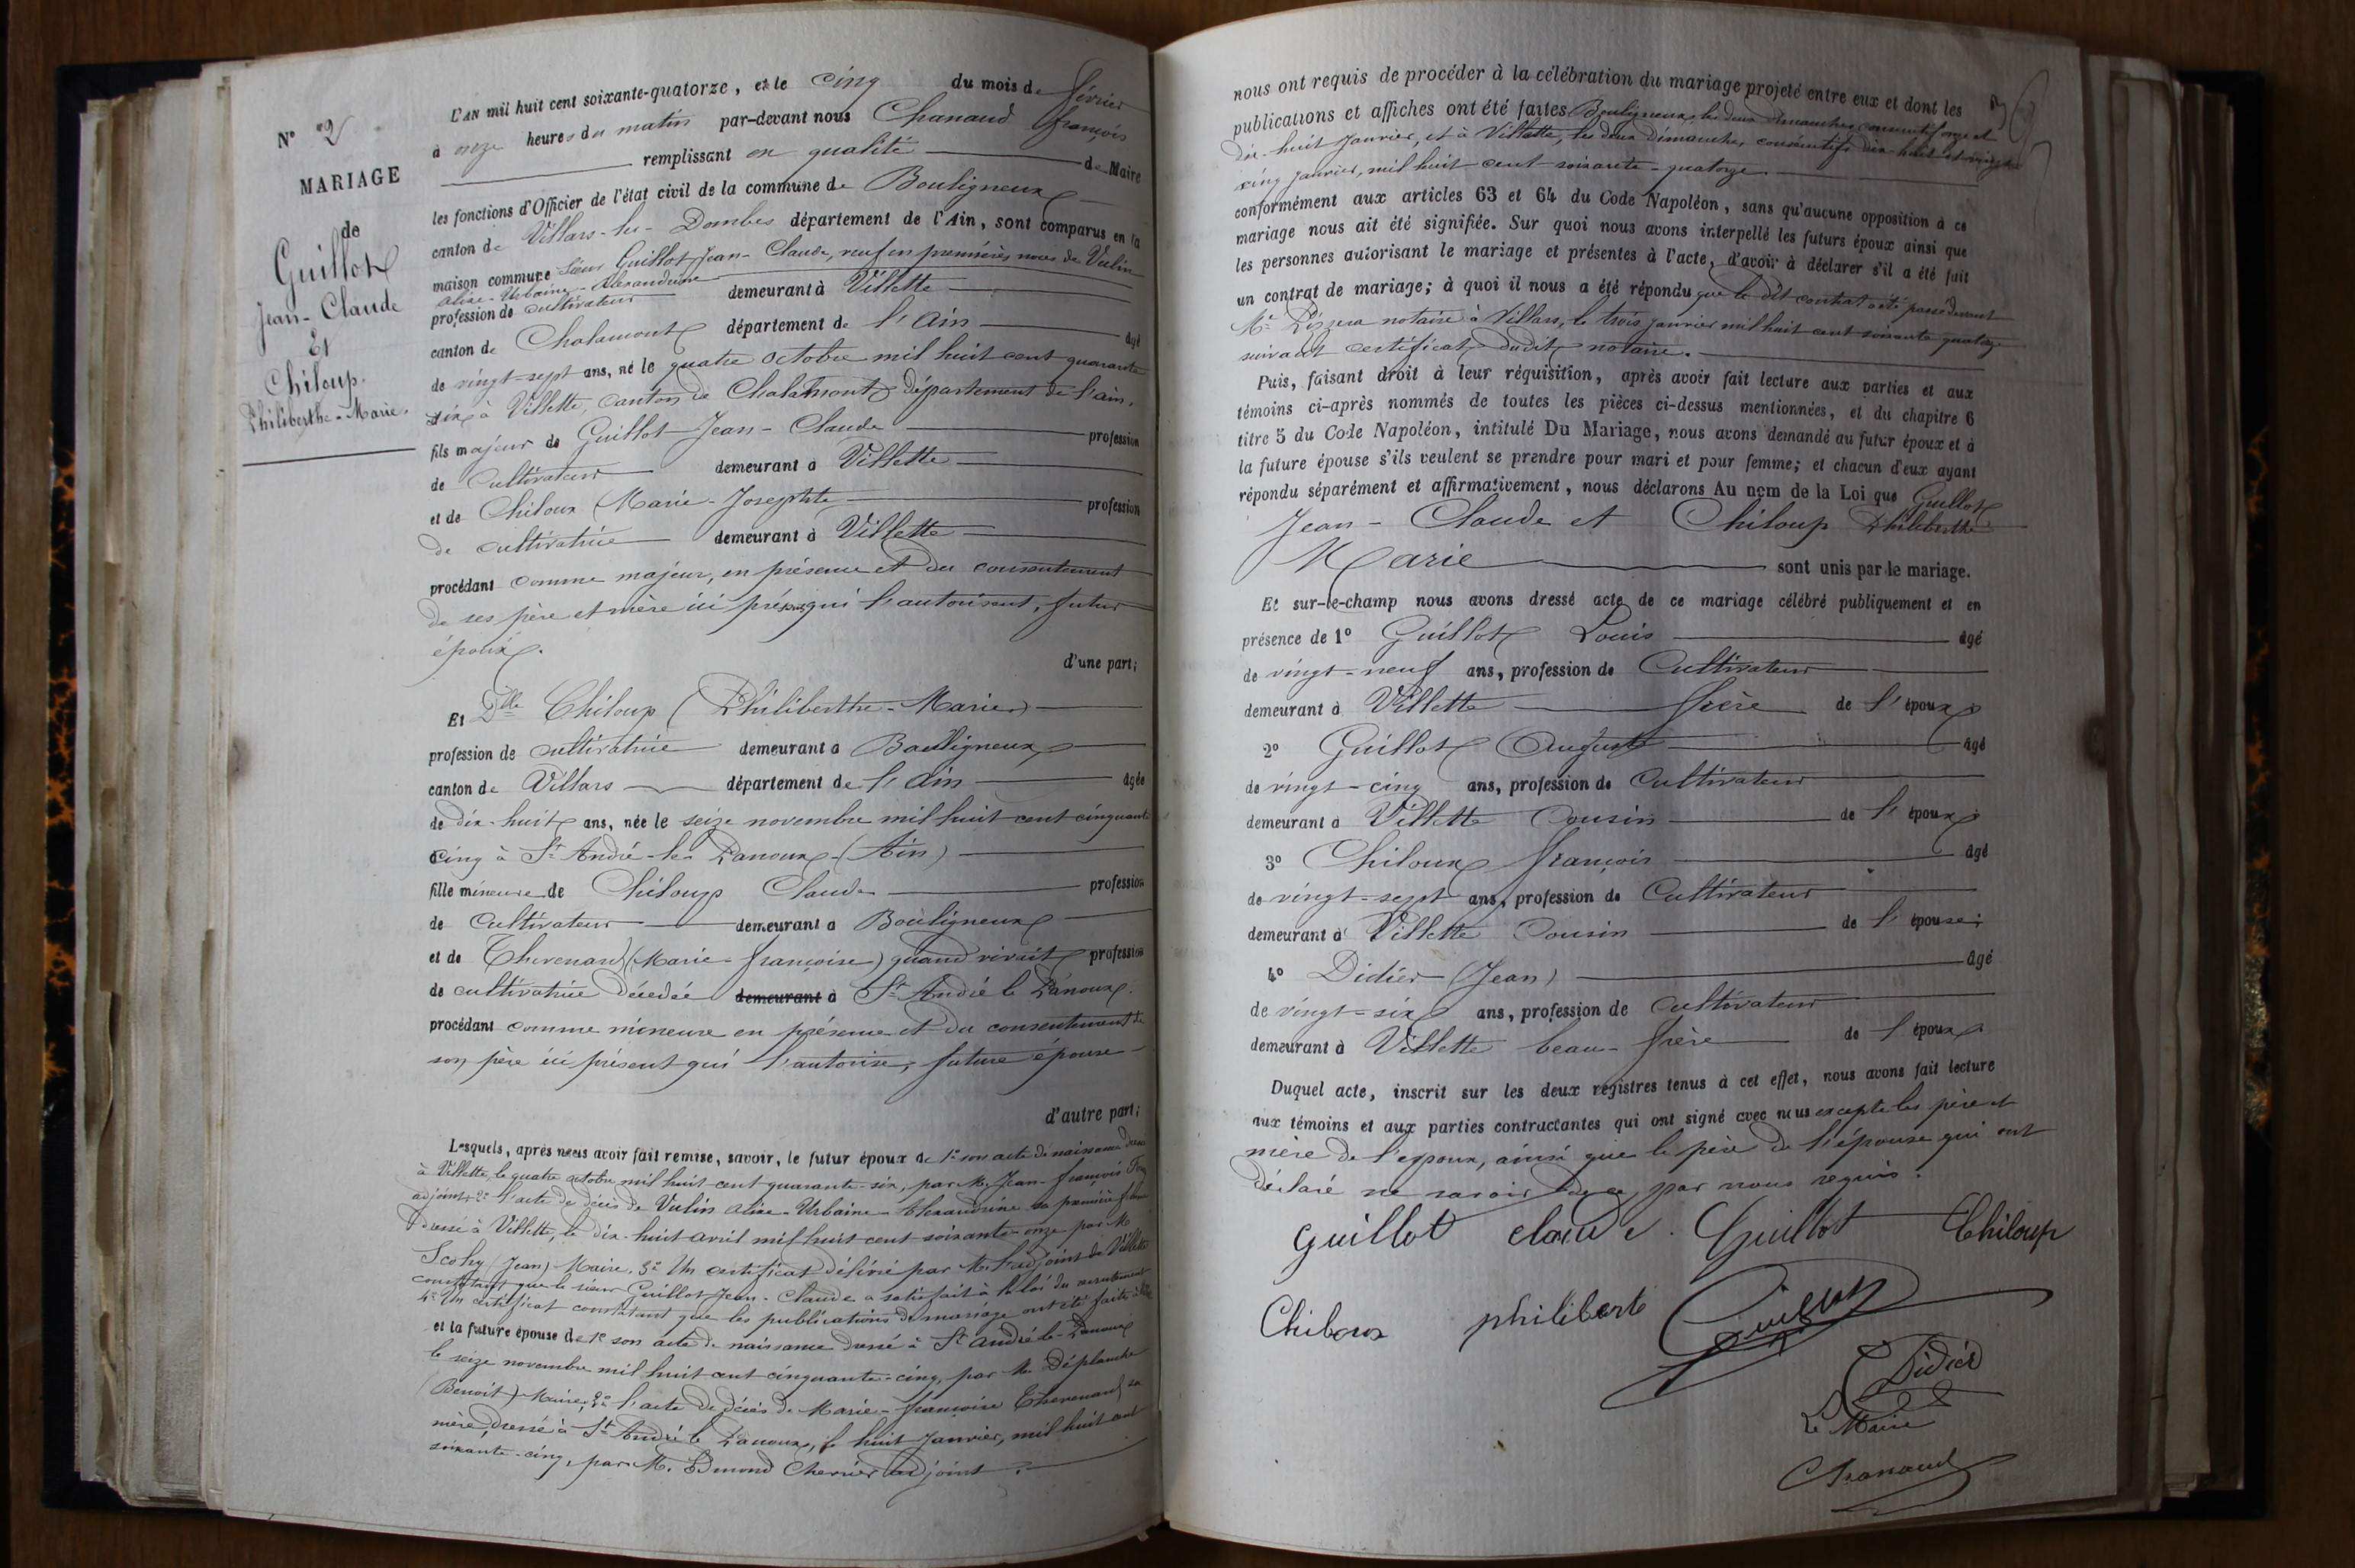 N° 2
MARIAGE
de
Guillot
Jean-Claude
Et
Chiloup
Philiberthe-Marie.
L'AN mil huit cent soixante-quatorze, et le cinq du mois de février
à onze heures du matin par-devant nous Chanaud françois
remplissant en qualité de Maire
les fonctions d'Officier de l'état civil de la commune de Bouligneux
canton de Villars-les-Dombes département de l'Ain, sont comparus en la
maison commune Sieur Guillot Jean-Claude, veuf en premières noces de Vulin
Alise-Urbaine-Alexandrine
profession de cultivateur demeurant à Villette
canton de Chalamont département de l'Ain âgé
de vingt-sept ans, né le quatre octobre mil huit cent quarante
six à Villette, canton de Chalamont département de l'ain.
fils majeur de Guillot Jean-Claude profession
de Cultivateur demeurant à Villette
et de Chiloux Marie-Josephte profession
de cultivatrice demeurant à Villette
procédant comme majeur, en présence et du consentement
de ses père et mère ici présents qui l'autorisent, futur
époux.
d'une part;
Et Dlle Chiloup (Philiberthe-Marie)
profession de cultivatrice demeurant à Bouligneux
canton de Villars département de l'Ain âgée
de dix-huit ans, née le seize novembre mil huit cent cinquante
cinq à St André-le-Panoux (Ain)
fille mineure de Chiloup Claude profession
de Cultivateur demeurant à Bouligneux
et de Thevenard (Marie-françoise) quand vivait profession
de cultivatrice décédée demeurant à St André le Panoux.
procédant comme mineure en présence et du consentement de
son père ici présent qui l'autorise, future épouse
d'autre part;
Lesquels, après nous avoir fait remise, savoir, le futur époux de 1° son acte de naissance dressé
à Villette, le quatre octobre mil huit cent quarante-six, par M. Jean-françois
adjoint 2° l'acte de décès de Vulin Alise-Urbaine-Alexandrine sa première femme
dressé à Villette, le dix-huit avril mil huit cent soixante-onze par M.
(Jean) Maire. 3° Un certificat délivré par M. l'adjoint de Villette
constatant que le sieur Guillot Jean-Claude a satisfait à la loi du recrutement
4° Un certificat constatant que les publications de mariage ont été faites à
et la future épouse de 1° son acte de naissance dressé à St André-le-Panoux
le seize novembre mil huit cent cinquante-cinq, par M. Déplanche
(Benoit) Maire; 2° l'acte de décès de Marie-françoise Thevenard sa
mère dressé à St André le Panoux, le huit Janvier, mil huit cent
soixante-cinq, par M. Edmond Chevrier adjoint.
nous ont requis de procéder à la célébration du mariage projeté entre eux et dont les
publications et affiches ont été faites Bouligneux, les deux dimanches consécutifs onze et
dix-huit Janvier, et à Villette, les deux Dimanches, consécutifs dix-huit et vingt
cinq janvier, mil huit cent soixante-quatorze.
conformément aux articles 63 et 64 du Code Napoléon, sans qu'aucune opposition à ce
mariage nous ait été signifiée. Sur quoi nous avons interpellé les futurs époux ainsi que
les personnes autorisant le mariage et présentes à l'acte, d'avoir à déclarer s'il a été fait
un contrat de mariage; à quoi il nous a été répondu que le dit contrat a été passé devant
Me notaire à Villars, le trois janvier mil huit cent soixante quatorze
suivant certificat dudit notaire.
Puis, faisant droit à leur réquisition, après avoir fait lecture aux parties et aux
témoins ci-après nommés de toutes les pièces ci-dessus mentionnées, et du chapitre 6
titre 5 du Code Napoléon, intitulé Du Mariage, nous avons demandé au futur époux et à
la future épouse s'ils veulent se prendre pour mari et pour femme; et chacun d'eux ayant
répondu séparément et affirmativement, nous déclarons Au nom de la Loi que Guillot
Jean-Claude et Chiloup Philiberthe
Marie sont unis par le mariage.
Et sur-le-champ nous avons dressé acte de ce mariage célébré publiquement et en
présence de 1° Guillot Louis âgé
de vingt-neuf ans, profession de Cultivateur
demeurant à Villette frère de l'époux
2° Guillot Auguste âgé
de vingt-cinq ans, profession de Cultivateur
demeurant à Villette Cousin de l'époux
3° Chiloux françois âgé
de vingt-sept ans, profession de Cultivateur
demeurant à Villette Cousin de l'épouse;
4° Didier (Jean) âgé
de vingt-six ans, profession de Cultivateur
demeurant à Villette beau-frère de l'époux
Duquel acte, inscrit sur les deux registres tenus à cet effet, nous avons fait lecture
aux témoins et aux parties contractantes qui ont signé avec nous excepté les père et
mère de l'époux, ainsi que le père de l'épouse qui ont
déclaré ne savoir de ce par nous requis.
Guillot claude. Guillot Chiloup
Chiloux philiberte
Didier
Le Maire
Chanaud